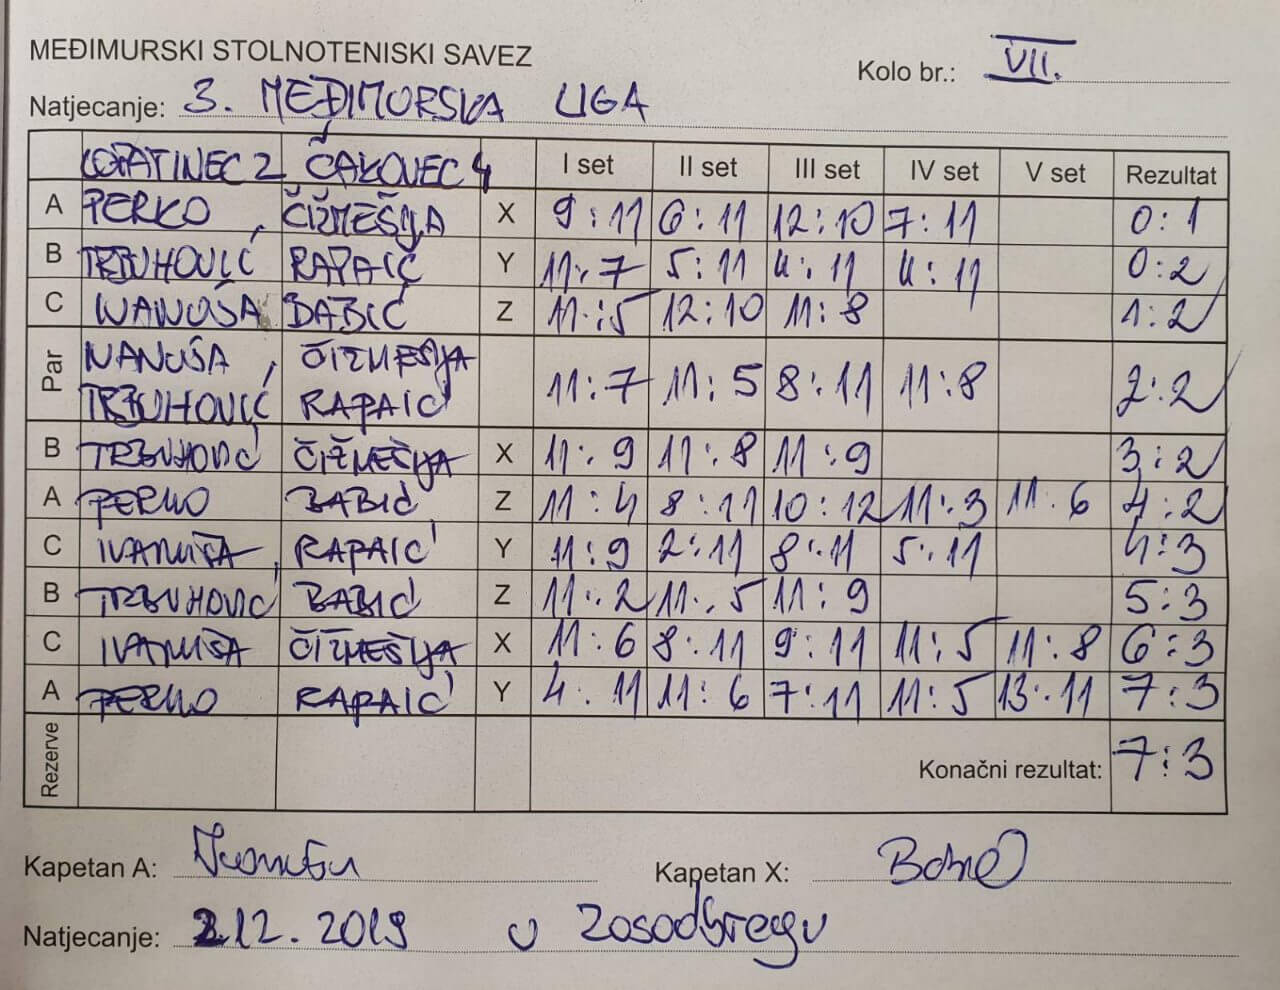 MEĐIMURSKI STOLNOTENISKI SAVEZ
Kolo br.: VII.
Natjecanje: 3. MEĐIMURSKA LIGA
LOPATINEC 2 ČAKOVEC 4 I set II set III set IV set V set Rezultat
A PERKO ČIŽMEŠIJA X 9:11 6:11 12:10 7:11 0:1
B TRBUHOVIĆ RAPAIĆ Y 11:7 5:11 4:11 4:11 0:2
C IVANUŠA BABIĆ Z 11:5 12:10 11:8 1:2
Par IVANUŠA, ČIŽMEŠIJA
TRBUHOVIĆ RAPAIĆ 11:7 11:5 8:11 11:8 2:2
B TRBUHOVIĆ ČIŽMEŠIJA X 11:9 11:8 11:9 3:2
A PERKO BABIĆ Z 11:4 8:11 10:12 11:3 11:6 4:2
C IVANUŠA RAPAIĆ Y 11:9 2:11 8:11 5:11 4:3
B TRBUHOVIĆ BABIĆ Z 11:2 11:5 11:9 5:3
C IVANUŠA ČIŽMEŠIJA X 11:6 8:11 9:11 11:5 11:8 6:3
A PERKO RAPAIĆ Y 4:11 11:6 7:11 11:5 13:11 7:3
Rezerve Konačni rezultat: 7:3
Kapetan A: Kapetan X:
Natjecanje: 2.12.2019 u Zasadbregu